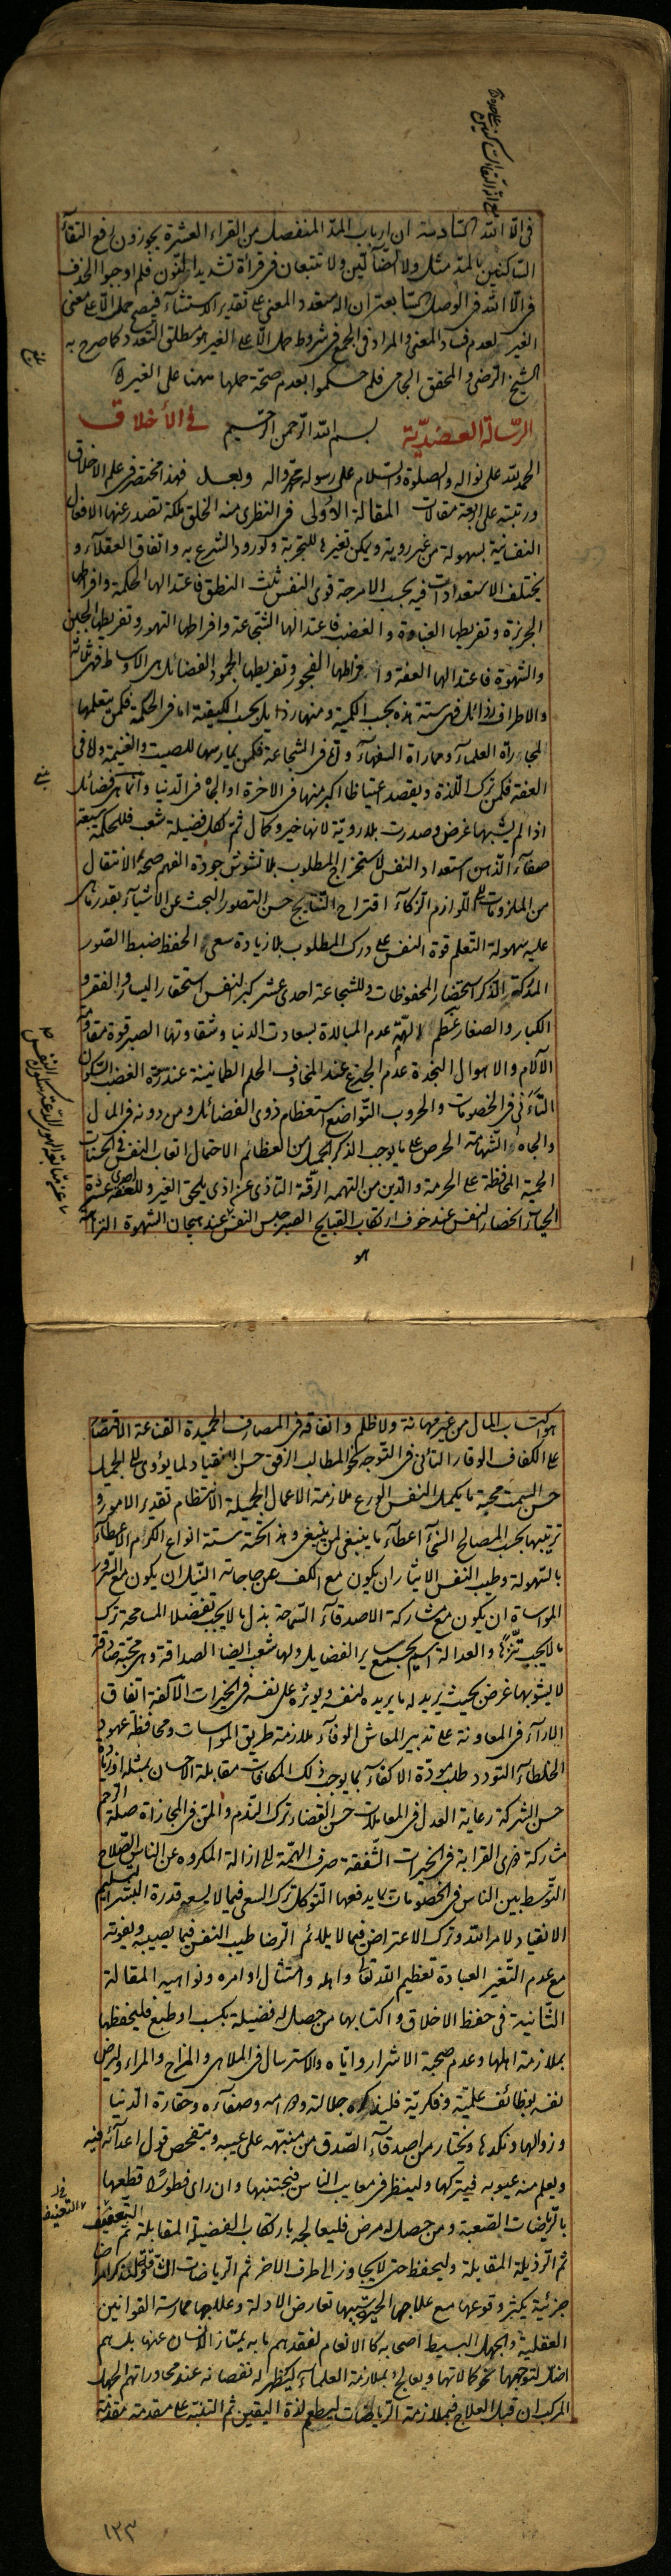 في الا الله السادسة ان ارباب المد المنفصل من القراء العشرة يجوزون رفع التقاء
الساكنين بالمد مثل ولا الضآلين ولا تتبعان في قراة تشديد النون فلم اوجبوا الحذف
في الا الله في الوصل السابعة ان اله متعدد المعنى على تقدير الاستثناء فيصح حمل الا على معنى
الغير لعدم فساد المعنى والمراد في الجمع في شروط حمل الا على الغير هو مطلق التعدد كما صرح به
الشيخ الرضي والمحقق الجامي فلم حكموا بعدم صحة حملها ههنا على الغير
الرسالة العضدية بسم الله الرحمن الرحيم في الأخلاق
الحمد لله على نواله والصلوة والسلام على رسوله محمد واله وبعد فهذا مختصر في علم الاخلاق
ورتبته على اربعة مقالات المقالة الأولى في النظري منه الخلق ملكة تصدر عنها الافعال
النفسانية بسهولة من غير روية ويمكن تغيرها للتجربة ولورود الشرع به واتفاق العقلآء و
يختلف الاستعدادات فيه بحسب الامزجة قوى النفس ثلث النطق فاعتدالها الحكمة وافراطها
الجربزة وتفريطها الغباوة والغضب فاعتدالها الشجاعة وافراطها التهور وتفريطها الجبن
والشهوة فاعتدالها العفة وافراطها الفجور وتفريطها الجمود الفضائل هي الاوساط فهي ثلاثة
والاطراف رذائل فهي ستة هذه بحسب الكمية ومنها رذايل بحسب الكيفية اما في الحكمة فكمن يتعلمها
لمجاراة العلماء ومماراة السفهآء واما في الشجاعة فكمن يمارسها للصيت والغنيمة واما في
العفة فكمن ترك اللذة ويقصد اعتياظا اكبر منها في الاخرة او الجاه في الدنيا وانما هي فضائل
اذا لم يشبها غرض وصدرت بلا روية لانها خير وكمال ثم لكل فضيلة شعب فللحكمة سبعة
صفآء الذهن استعداد النفس لاستخراج المطلوب بلا تشوش جودة الفهم صحة الانتقال
من الملزومات الى اللوازم الزكآء اقتراح النتايج حسن التصور البحث عن الاشيآء بقدر ما هي
عليه سهولة التعلم قوة النفس على درك المطلوب بلا زيادة سعى الحفظ ضبط الصور
المدركة الذكر استحضار المحفوظات وللشجاعة احدى عشر كبر النفس استحقار اليسار والفقر و
الكبار والصغار عظم الهمة عدم المبالاة بسعادت الدنيا وشقاوتها الصبر قوة مقاومة
الآلام والاهوال النجدة عدم الجزع عند المخاوف الحلم الطمانينة عند سورة الغضب السكون
التأنى في الخصومات والحروب التواضع استعظام ذوى الفضائل ومن دونه في المال
والجاه الشهامة الحرص على ما يوجب الذكر الجميل من العظائم الاحتمال اتعاب النفس في الحسنات
الحمية المحافظة على الحرمة والدين من التهمه الرقة التاذى عن اذى يلحق الغير وللعفة احدى عشرة
الحياء انحصار النفس عند خوف ارتكاب القبايح الصبر حبس النفس عند هيجان الشهوة النزاهة
هو
هو اكتساب المال من غير مهانة ولا ظلم وانفاقه في المصارف الحميدة القناعة الاقتصار
على الكفاف الوقار التأنى في التوجه نحو المطالب الرفق حسن الانقياد لما يؤدى الى الجميل
حسن السمت محبة ما يكمل النفس الورع ملازمة الاعمال الجميلة الانتظام تقدير الامور و
ترتيبها بحسب المصالح السخآء اعطآء ما ينبغى لمن ينبغى وهذا تحته ستة انواع الكرم الاعطآء
بالسهولة وطيب النفس الايثار ان يكون مع الكف عن حاجاته النيل ان يكون مع السرور
المواساة ان يكون مع مشاركة الاصدقآء السماحة بذل ما لا يجب تفضلا المسامحة ترك
ما لا يجب تنزها والعدالة اسم يجمع ساير الفضايل ولها شعب ايضا الصداقة وهي محبة صادقة
لا يشوبها غرض بحيث يريد له ما يريده لنفسه ويوثره على نفسه في الخيرات الآلفة اتفاق
الارآء في المعاونة على تدبير المعاش الوفآء ملازمة طريق المواسات ومحافظة عهود
الخلطآء التودد طلب مودة الاكفآء بما يوجب ذلك المكافات مقابلة الاحسان بمثله او زيادة
حسن الشركة رعاية العدل في المعاملات حسن القضاء ترك الندم والمن في المجازاة صلة الرحم
مشاركة ذوى القرابة في الخيرات الشفقة صرف الهمة الى ازالة المكروه عن الناس الاصلاح
التوسط بين الناس في الخصومات بما يدفعها التوكل ترك السعى فيما لا يسعه قدرة البشر التسليم
الانقياد لامر الله وترك الاعتراض فيما لا يلائم الرضا طيب النفس فيما يصيبه ويفوته
مع عدم التغير العبادة تعظيم الله تعالى واهله وامتثال اوامره ونواهيه المقالة
الثانية في حفظ الاخلاق واكتسابها من حصل له فضيلة بكسب او طبع فليحفظها
بملازمة اهلها وعدم صحبة الاشرار واياه والاسترسال في الملاهي والمزاح والمراء وليرض
نفسه بوظائف علمية وفكرية فليذكر جلالته ودوامه وصفآءه وحقارة الدنيا
وزوالها ونكدها ويختار من اصدقآء الصدق من ينبهه على عيبه ويتفحص قول اعدآئه فيه
ويعلم منه عيوبه فيتركها ولينظر في معايب الناس فيجتنبها وان راى فطورا قطعها
بالرياضات الصعبة ومن حصل له مرض فليعالجه بارتكاب الفضيلة المقابلة ثم التعنيف
ثم الرذيلة المقابلة وليحفظ حتى لا يجاوز الى طرف الاخر ثم الرياضات الشاقة ولنذكر امراضا
جزئية يكثر وقوعها مع علاجها الحيرة سببها تعارض الادلة وعلاجها ممارسة القوانين
العقلية والجهل البسيط اصحابه كالانعام لفقدهم ما به يمتاز الانسان عنها بل هم
اضل لتوجهها نحو كمالاتها ويعالج بملازمة العلمآء ليظهر له نقصانه عند محاوراتهم الجهل
المركب ان قبل العلاج فبملازمة الرياضات ليطعم لذة اليقين ثم التنبه على مقدمة مقدمة
١٢٣